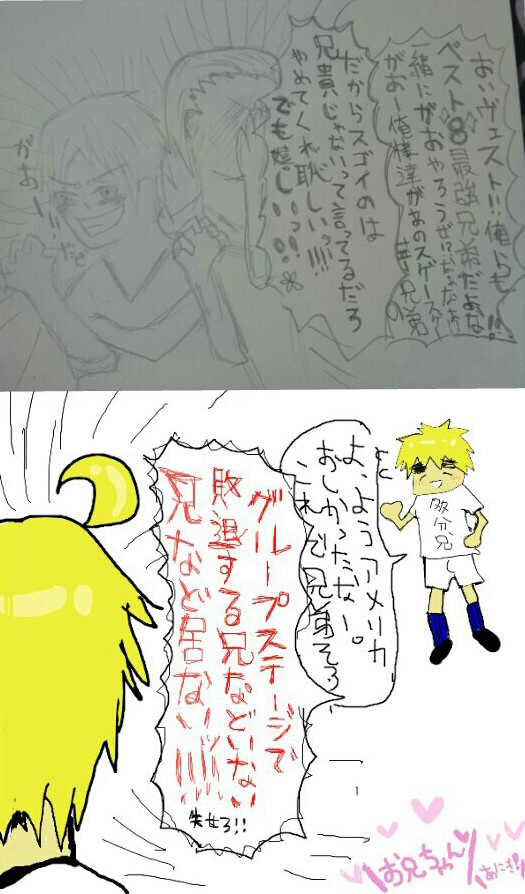 おいヴェスト!!俺らも
ベスト8最強兄弟だよな!!
がおー俺様達があのスゲー
芋兄弟の
だからスゴイのは
兄貴じゃないって言ってるだろ
やめてくれ恥しいっ!!!!
でも嬉しいっ!!
がおー!!
よ、ようアメリカ
おしかったな。
これで兄弟そろ
グループステージで
敗退する兄などいない
兄など居ないッ!!!!!
失せろ!!
お兄ちゃん
あにき!!